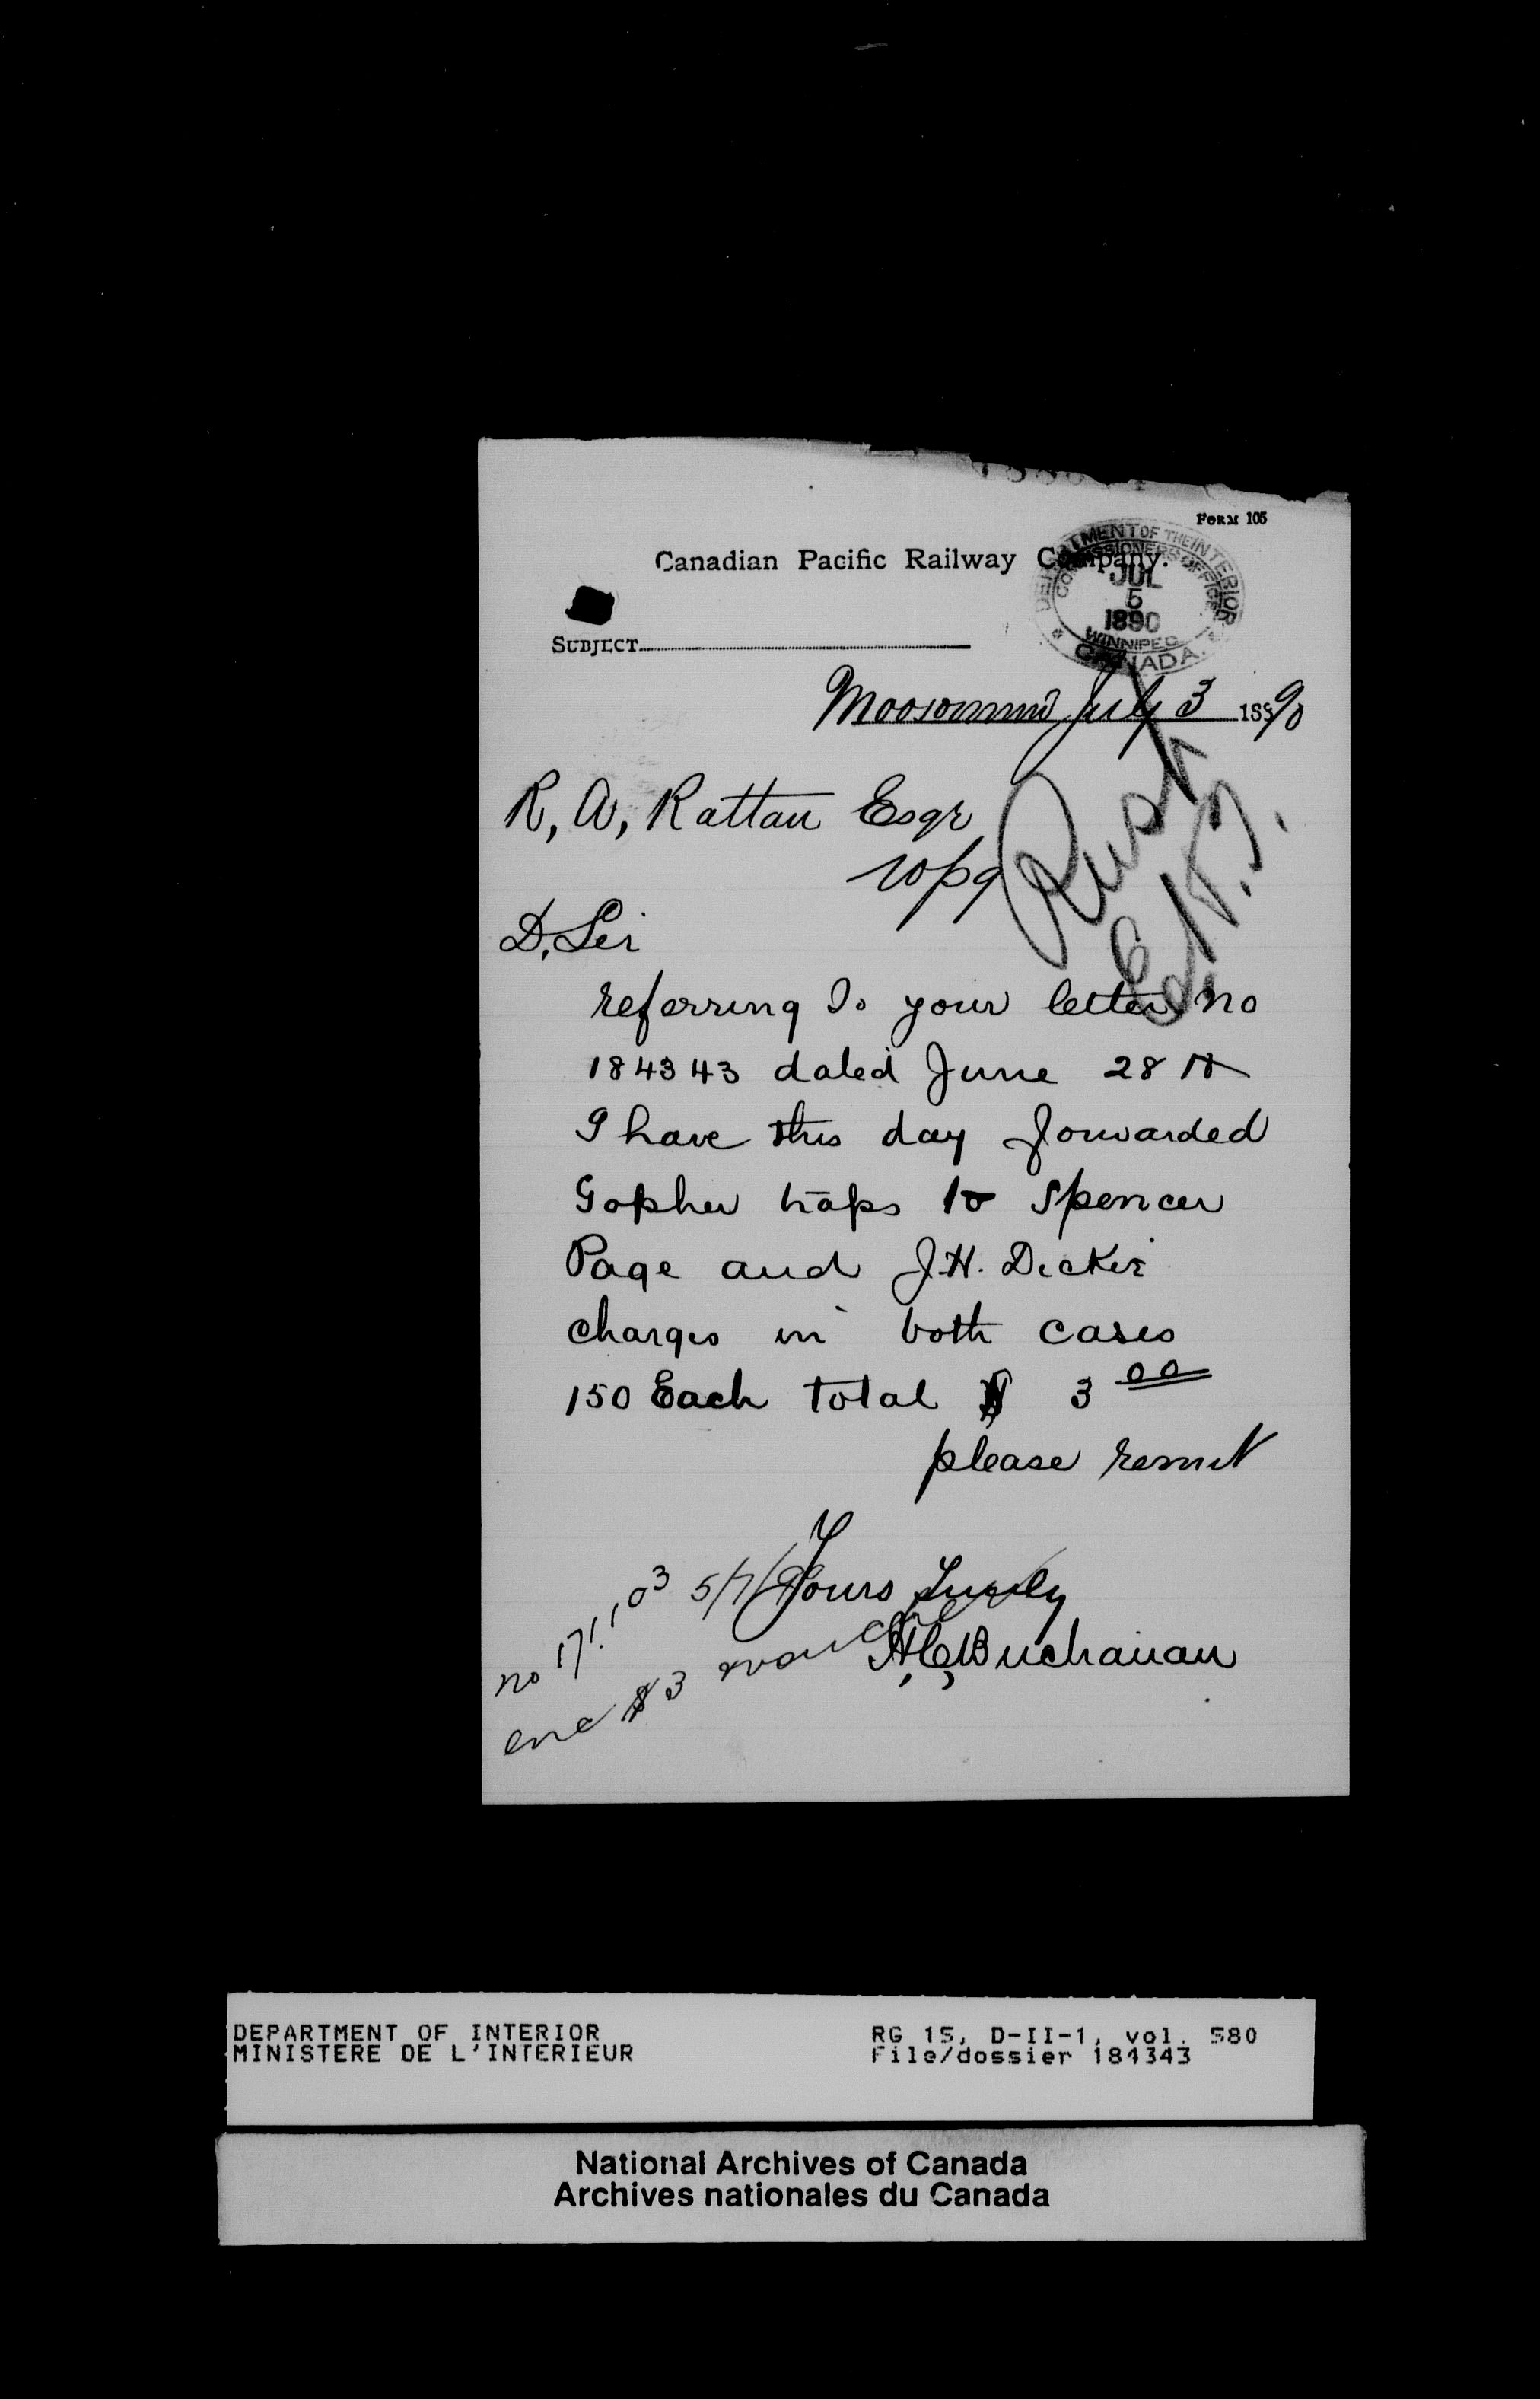 FORM 105
Canadian Pacific Railway Company.
DEPARTMENT OF THE INTERIOR
COMMISSIONERS OFFICE
JUL
5
1890
WINNIPEG
CANADA.
SUBJECT
Moosomin July 3 1890
R, A, Ruttan Esqr
wpg
D, Sir
referring to your letter no
184343 dated June 28th
I have this day forwarded
Gopher traps to Spencer
Page and J.H. Dickie
charges in both cases
150 Each total $ 3 00
please remit
Yours Truly
H, C, Buchanan
no 171103 5/7/90
enc $3
DEPARTMENT OF INTERIOR
MINISTERE DE L'INTERIEUR
RG 15, D-II-1, vol. 580
File/dossier 184343
National Archives of Canada
Archives nationales du Canada